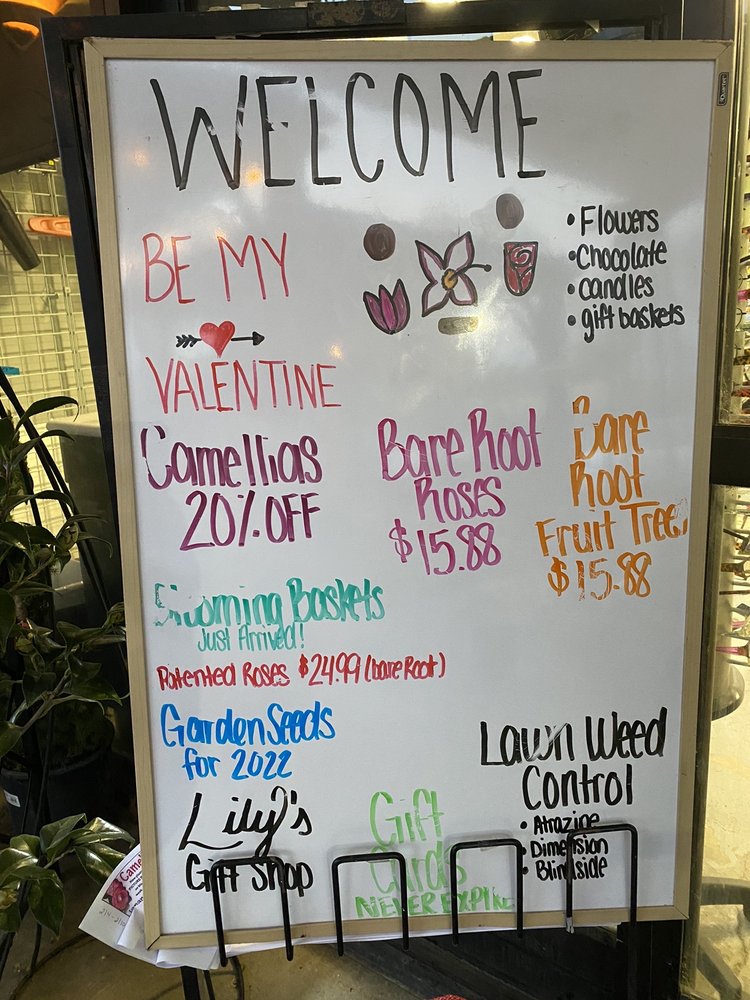 WELCOME
BE MY
VALENTINE
• Flowers
• Chocolate
• candles
• gift baskets
Camellias
20% OFF
Bare Root
Roses
$15.88
Bare
Root
Fruit Trees
$15.88
Blooming Baskets
Just Arrived!
Patented Roses $24.99 (bare Root)
Garden Seeds
for 2022
Lily's
Gift Shop
Gift
Cards
NEVER EXPIRE
Lawn Weed
Control
• Atrazine
• Dimension
• Blindside
Quartet